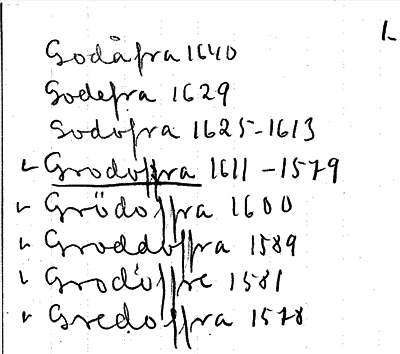 Godåfra 1640
Godefra 1629
Godofra 1625-1613
Grodoffra 1611-1579
Grödoffra 1600
Groddoffra 1589
Grodoffre 1581
Gredoffra 1578